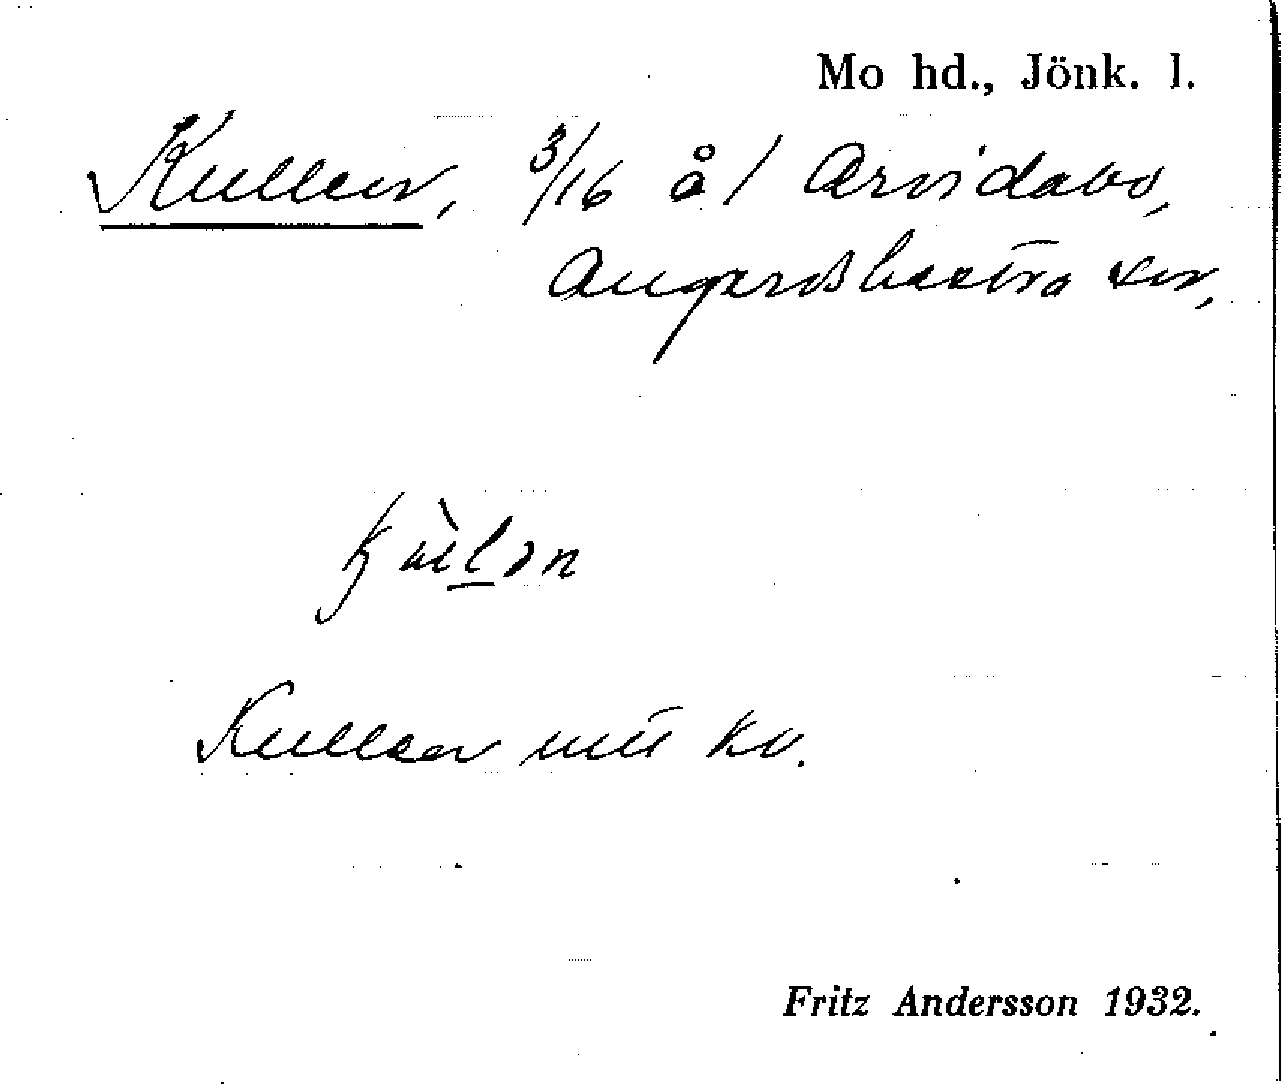 Mo hd., Jönk. l.
Kullen, 3/16 å 1 Arvidabo,
Angerdshestra sn,
Kullen mit kv.
Fritz Andersson 1932.